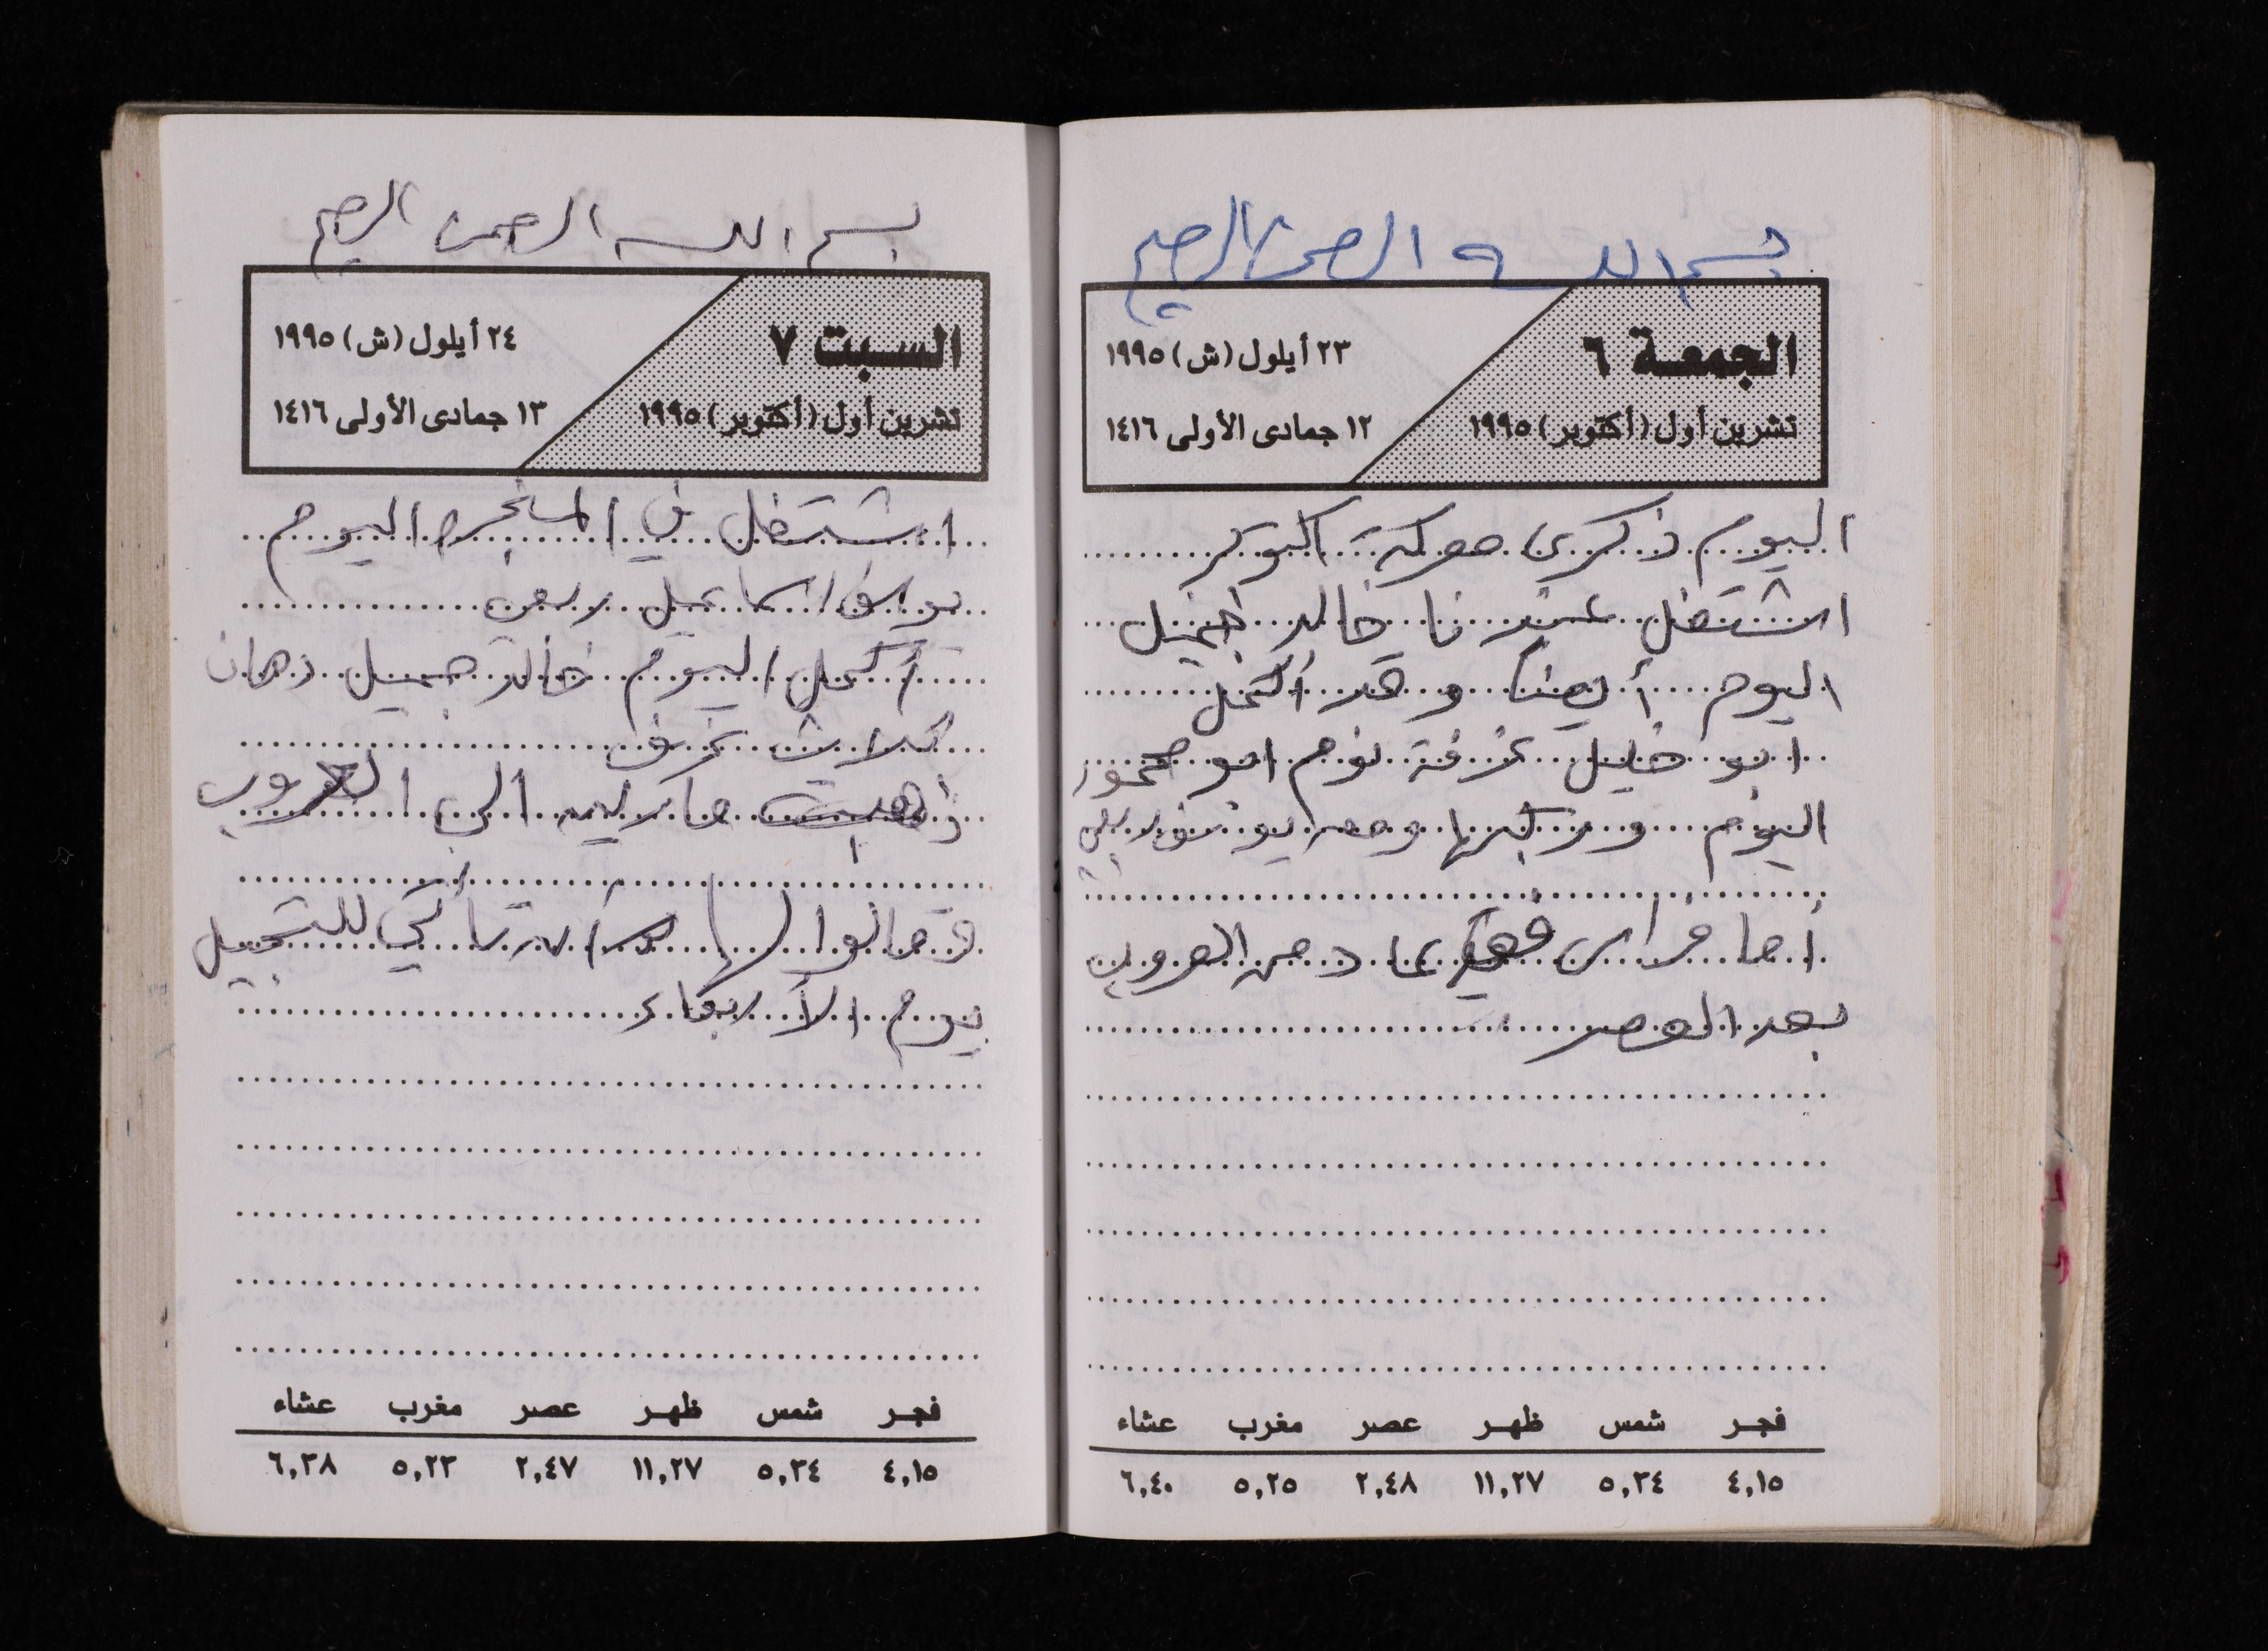 بسم الله الرحمن الرحيم
الجمعة ٦
تشرين أول (أكتوبر) ١٩٩٥
٢٣ أيلول (ش) ١٩٩٥
١٢ جمادى الأولى ١٤١٦
اليوم ذكرى معركة اكتوبر
اشتغل عندنا خالد جميل
اليوم أيضاً وقد أكمل
ابو خليل غرفة نوم ابو محمود
اليوم وركبها ومعه يوسف ربعي
أما فراس فقد عاد من العروب
بعد العصر
فجر شمس ظهر عصر مغرب عشاء
٤,١٥ ٥,٣٤ ١١,٢٧ ٢,٤٨ ٥,٢٥ ٦,٤٠
بسم الله الرحمن الرحيم
السبت ٧
تشرين أول (أكتوبر) ١٩٩٥
٢٤ أيلول (ش) ١٩٩٥
١٣ جمادى الأولى ١٤١٦
اشتغل في المنجره اليوم
يوسف اسماعيل ربعي
أكمل اليوم خالد جميل دهان
ثلاث غرف
ذهبت الى العروب
وقالوا لها تأتي للتسجيل
يوم الأربعاء
فجر شمس ظهر عصر مغرب عشاء
٤,١٥ ٥,٣٤ ١١,٢٧ ٢,٤٧ ٥,٢٣ ٦,٣٨